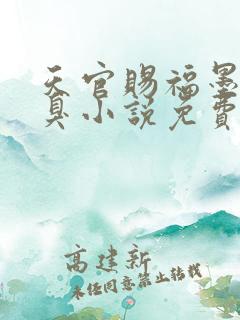 天官赐福墨
真小说免费
高建新
未经同意禁止转载